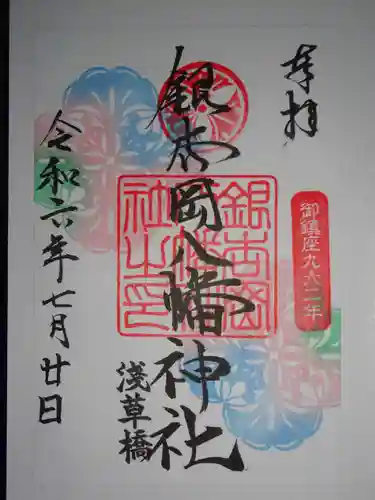 奉拝
御鎮座九六二年
銀杏岡八幡神社
銀杏岡八幡神社之印
淺草橋
令和六年七月廿日